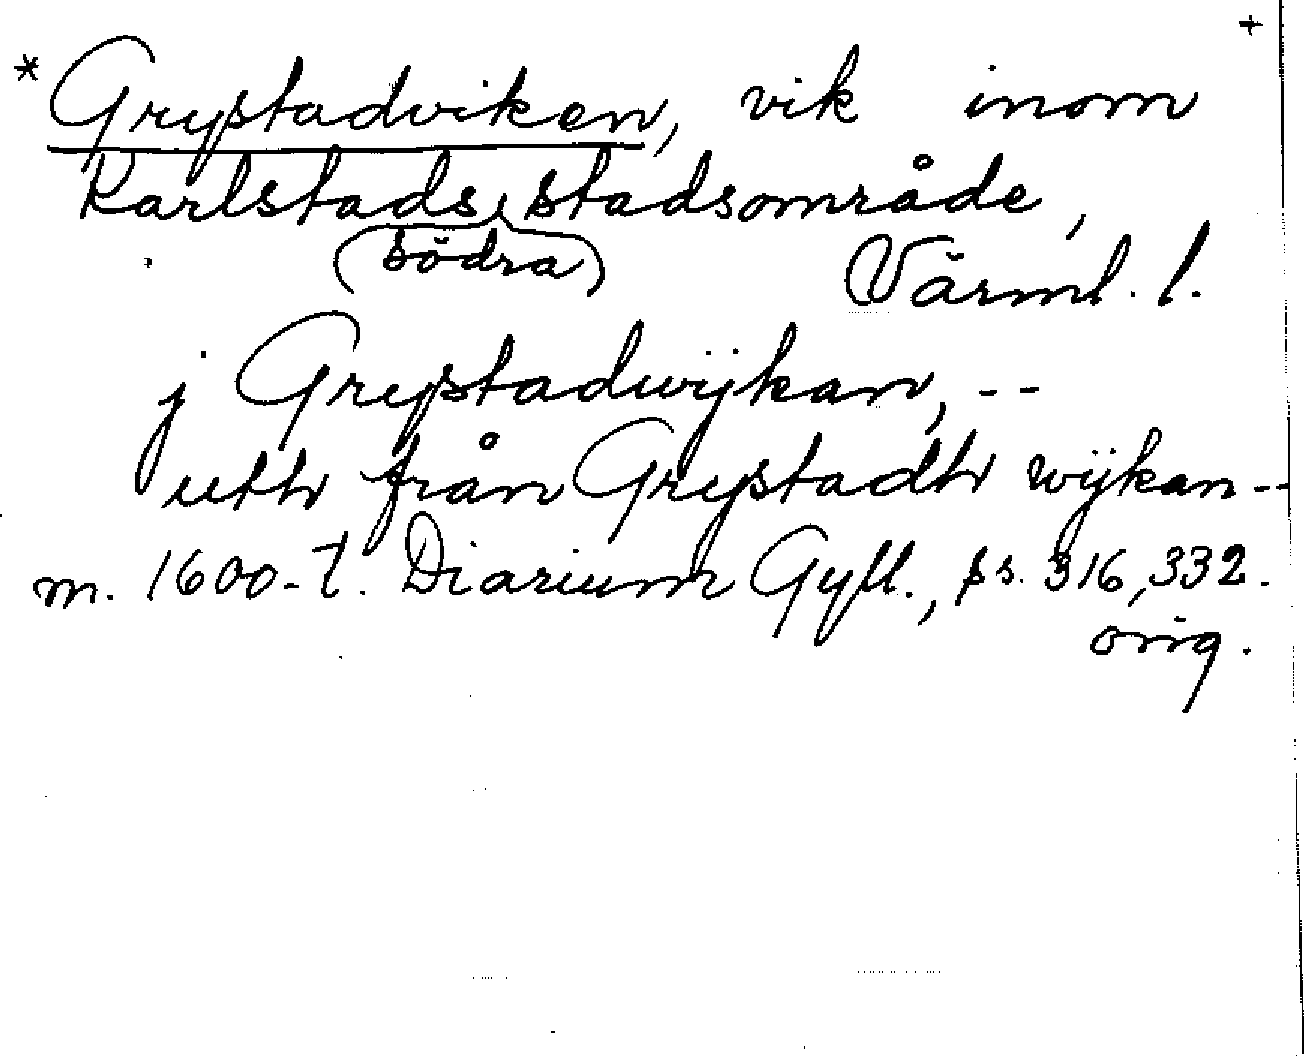 +
*Grystadviken, vik inom
Karlstads stadsområde,
(södra)
Värml. l.
j Grystadwijkan, --
utth från Grystadh wijkan --
m. 1600-t. Diarium Gyll., ss. 316, 332.
orig.